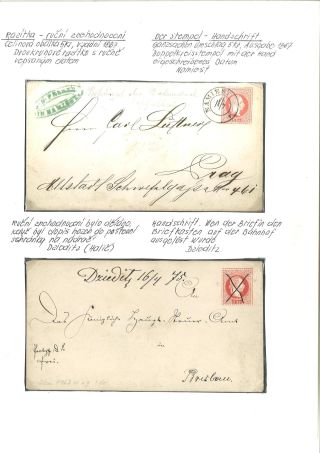 Razítka - ruční znehodnocení
Celinová obálka 5kr, vydání 1867
Dvoukruhové razítko s ručně
vepsaným datem
Der Stempel - Handschrift
Ganzsachen Umschlag 5kr, Ausgabe 1867
Doppelkreisstempel mit der Hand
eigeschriebenes Datum
Namiest
NAMIEST
Herrn Carl
Prag
Altstadt
Ruční znehodnocení bylo užíváno,
když byl dopis hozen do poštovní
schránky na nádraží
Dzieditz (Halič)
Handschrift. Wen der Brief in den
Briefkasten auf der Bahnhof
ausgelöst wurde
Dzieditz
Dzieditz 16/4 75
An
Das Königliche Haupt Steuer Amt
in
Breslau